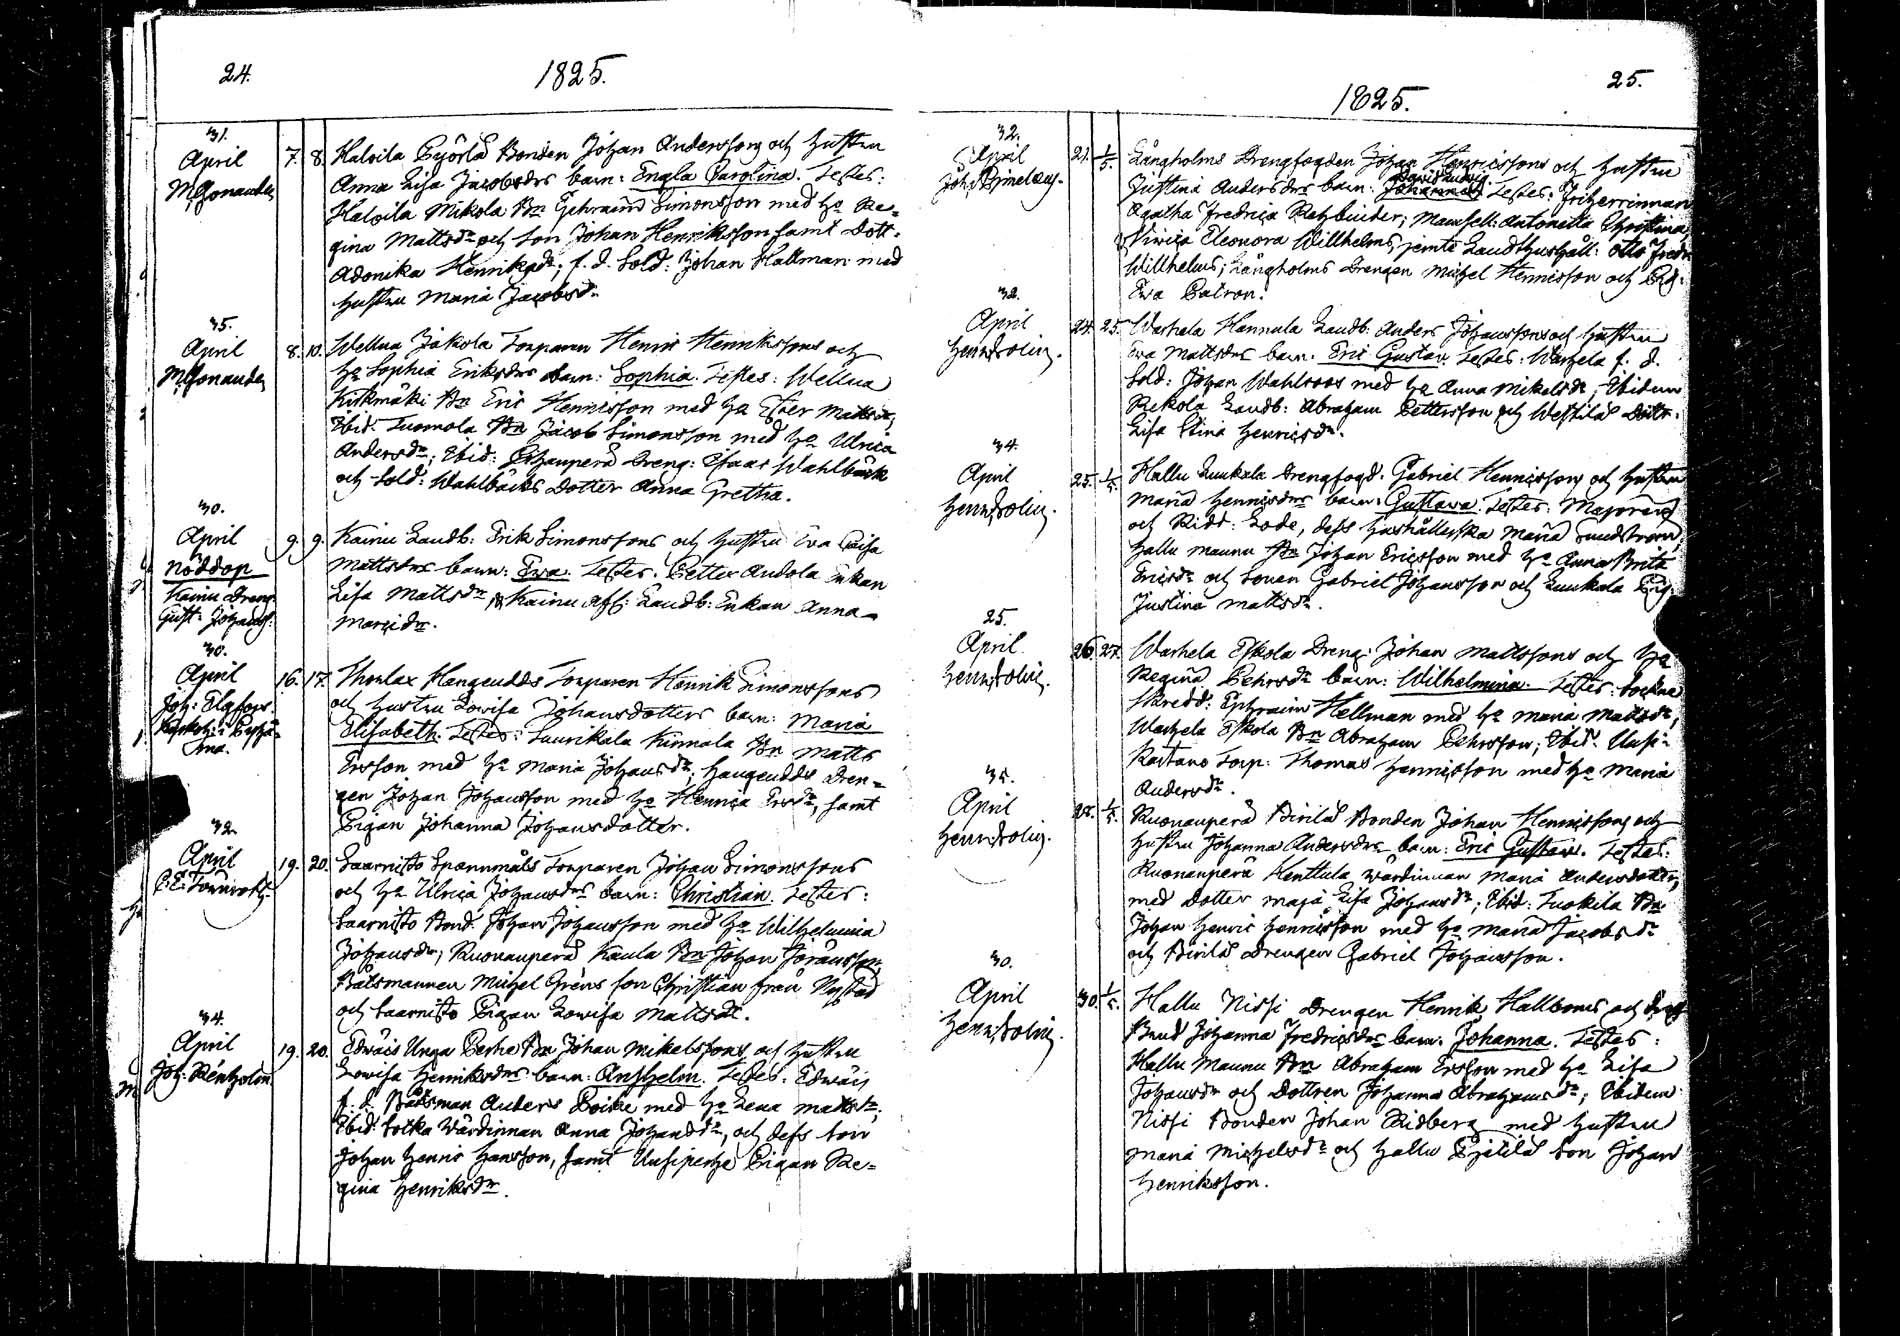 24.
1825.
31.
April
M. Gonander
7. 8.
Haloila Pyörlä Bonden Johan Anderssons och hustru
Anna Lisa Jacobsdrs barn: Engla Carolina. Testes:
Haloila Mikola Bn Ephraim Simonsson med ha Re=
gina Mattsdr och son Johan Henriksson samt Dott.
Adonika Henriksdr; f. d. Sold: Johan Hallman med
hustru Maria Jacobsdr
35.
April
M. Gonander
8. 10.
Wellua Jakola Torparen Henric Henrikssons och
ha Sophia Eriksdrs barn: Sophia. Testes: Wellua
Kirkmäki Bn Eric Henricsson med ha Ester Mattsdr,
Ibid: Tuomola Bn Jacob Simonsson med ha Ulrica
Andersdr; Ibid: Dreng: Isaac Wahlbäck
och Sold: Wahlbäcks Dotter Anna Gretha.
30.
April
Nöddop
Kainu Dreng
Gust: Johanss:
9. 9.
Kainu Landb: Erik Simonssons och hustru Eva Caisa
Mattsdrs barn: Eva. Testes. Petter Andola Enkan
Lisa Mattsdr, Kainu aff: Landb: Enkan Anna
30.
April
Joh: Elgfors
16. 17.
Thorlax Hangeudds Torparen Henrik Simonssons
och hustru Lowisa Johansdotters barn: Maria
Elisabeth. Testes: Laurikala Kinnala Bn Matts
Ersson med ha Maria Johansdr; Haugeudds Dren=
gen Johan Johansson med ha Henrica Ersdr, samt
Pigan Johanna Johansdotter.
32.
April
19. 20.
Saarnisto Torparen Johan Simonssons
och ha Ulrica Johansdrs barn: Christian. Testes:
Saarnisto Bond. Johan Johansson med ha Wilhelmina
Johansdr; Ruonanperä Kaula Bn Johan Göransson,
Båtsmannen Michel Gréns son Christian från Nystad
och Saarnisto Pigan Lowisa Mattsdr.
34.
April
Joh: Renholm
19. 20.
Edwäis Unga Perhe Bn Johan Mikelssons och hustru
Lowisa Henriksdrs barn: Anshelm. Testes: Edwäis
f. d. Båtsman Anders Poike med ha Lena Mattsdr,
Ibid: Sorka Wärdinnan Anna Johansdr, och dess son
Johan Henric Hansson, samt Uusiperhe Pigan Re=
gina Henriksdr.
1825.
25.
32.
April
21. 1/5.
Långholms Drengfogden Johan Henricssons och hustru
Justina Andersdrs barn: David Ludvig Johannes. Testes: Friherrinnan
Agatha Fredrica Rehbinder; Mamsell: Antonetta Christina
Vivica Eleonora Willhelms, jemte Landshushåll: Otto Fredr:
Willhelms; Långholms Drengen Michel Henricsson och Pig:
Eva Catron.
32.
April
Henr. Polin.
24. 25.
Warhela Hannula Landb: Anders Johanssons och hustru
Eva Mattsdrs barn: Eric Gustav. Testes: Warhela f. d.
Sold: Johan Wahlroos med ha Anna Mikelsdr, Ibidem
Rekola Landb: Abraham Pettersson och Westilä Dottr:
Lisa Stina Henricsdr.
34.
April
Henr. Polin.
25. 1/5.
Hallu Luukala Drengfogd: Gabriel Henricssons och hustru
Maria Henricsdrs barn: Gustava. Testes: Majoren
och Ridd: Lode, dess hushållerska Maria Sundström,
Hallu Maunu Bn Johan Ericsson med ha Anna Brita
Ericsdr och sonen Gabriel Johansson och Luukala Pig:
Justina Mattsdr.
25.
April.
Henr. Polin.
26. 27.
Warhela Eskola Dreng: Johan Mattssons och ha
Regina Pehrsdr barn: Wilhelmina. Testes: Sockne
Skredd: Ephraim Hellman med ha Maria Mattsdr,
Warhela Eskola Bn Abraham Pehrsson; Ibid: Uusi-
Raitano Torp: Thomas Henricsson med ha Maria
Andersdr.
35.
April
Henr. Polin.
28. 1/5.
Ruonanperä Birilä Bonden Johan Henricssons och
hustru Johanna Andersdrs barn: Eric Gustav. Testes:
Ruonanperä Henttula Wärdinnan Maria Andersdotter,
med dotter Maja Lisa Johansdr; Ibid: Tuokila Bn
Johan Henric Henricsson med ha Maria Jacobsdr
och Birilä Drengen Gabriel Johansson.
30.
April
Henr. Polin.
30. 1/5.
Hallu Nissi Drengen Henrik Hallboms och dess
Brud Johanna Fredricsdrs barn: Johanna. Testes:
Hallu Maunu Bn Abraham Ersson med ha Lisa
Johansdr och Dottren Johanna Abrahamsdr; Ibidem
Nissi Bonden Johan Ridberg med hustru
Maria Michelsdr och Hallu Pjelilä Son Johan
Henriksson.